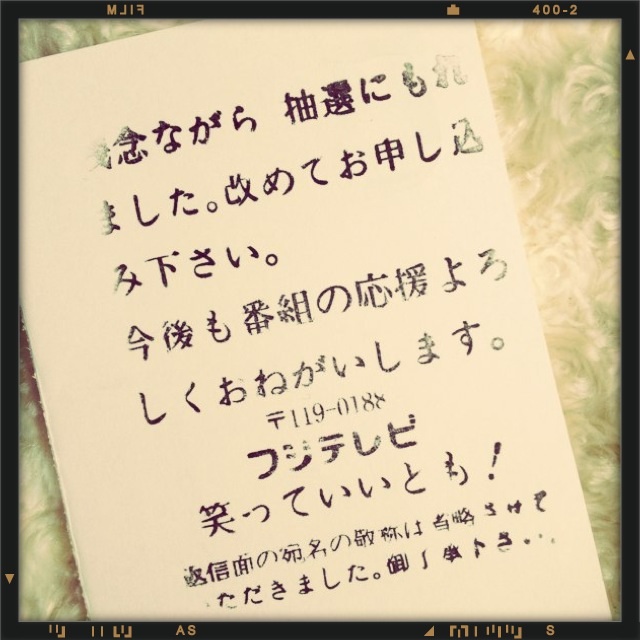 FILM
400-2
残念ながら 抽選にもれ
ました。改めてお申し込
み下さい。
今後も番組の応援よろ
しくおねがいします。
〒119-0188
フジテレビ
笑っていいとも!
返信面の宛名の敬称は省略させて
いただきました。御了承下さい。
AS
S